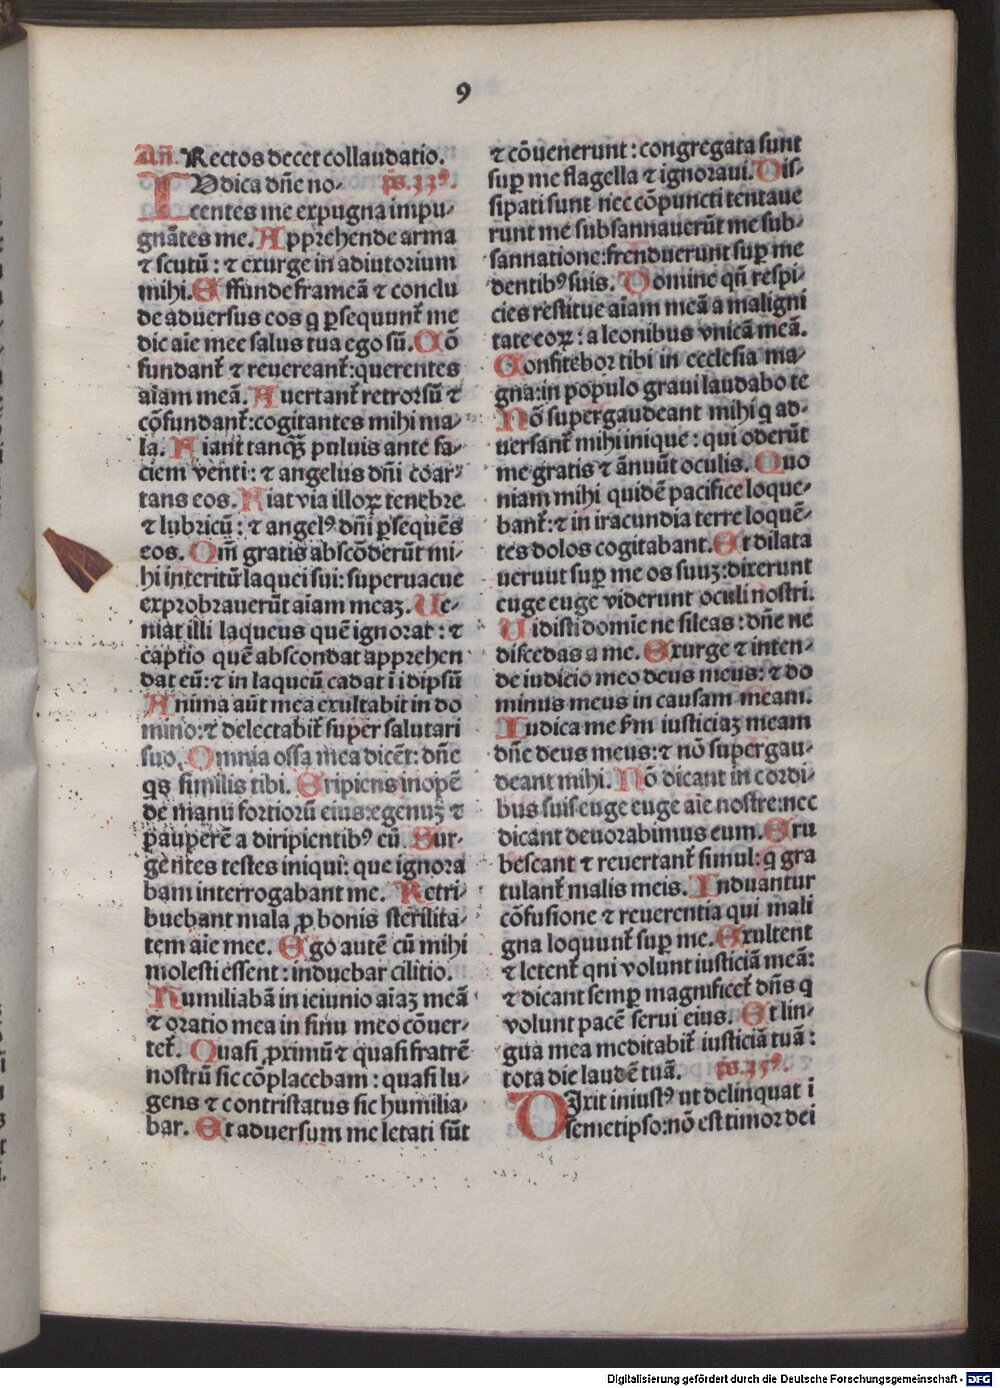 9
Añ. Rectos decet collaudatio.
IVdica dñe no- ps.33⁹.
centes me expugna impu-
gnãtes me. Apprehende arma
⁊ scutũ: ⁊ exurge in adiutorium
mihi. Effunde frameã ⁊ conclu
de aduersus eos q ꝑsequunt᷑ me
dic aĩe mee salus tua ego sũ. Cõ
fundant᷑ ⁊ reuereant᷑: querentes
aĩam meã. Auertant᷑ retrorsũ ⁊
cõfundant᷑: cogitantes mihi ma-
la. Fiant tanqȝ puluis ante fa-
ciem venti: ⁊ angelus dñi coar-
tans eos. Fiat via illoꝝ tenebre
⁊ lubricũ: ⁊ angel⁹ dñi ꝑsequẽs
eos. Qm̃ gratis abscõderũt mi-
hi interitũ laquei sui: superuacue
exprobrauerũt aĩam meaȝ. Ue-
niat illi laqueus quẽ ignorat: ⁊
captio quẽ abscondat apprehen
dat eũ: ⁊ in laqueũ cadat ĩ idipsũ
Anima aũt mea exultabit in do
mino: ⁊ delectabit᷑ super salutari
suo. Omnia ossa mea dicẽt: dñe
qs similis tibi. Eripiens inopẽ
de manu fortiorũ eius: egenuȝ ⁊
pauperẽ a diripientib⁹ eũ. Sur-
gẽntes testes iniqui: que ignora
bam interrogabant me. Retri-
buebant mala ꝓ bonis sterilita-
tem aĩe mee. Ego autẽ cũ mihi
molesti essent: induebar cilitio.
Humiliabã in ieiunio aĩaȝ meã
⁊ oratio mea in sinu meo cõuer-
tet᷑. Quasi ꝓximũ ⁊ quasi fratrẽ
nostrũ sic cõplacebam: quasi lu-
gens ⁊ contristatus sic humilia-
bar. Et aduersum me letati sũt
⁊ cõuenerunt: congregata sunt
suꝑ me flagella ⁊ ignoraui. Dis-
sipati sunt nec cõpuncti tentaue
runt me subsannauerũt me sub-
sannatione: frenduerunt suꝑ me
dentib⁹ suis. Domine qñ respi-
cies restitue aĩam meã a maligni
tate eoꝝ: a leonibus vnicã meã.
Confitebor tibi in ecclesia ma-
gna: in populo graui laudabo te
Nõ supergaudeant mihi q ad-
uersant᷑ mihi inique: qui oderũt
me gratis ⁊ ãnuũt oculis. Quo
niam mihi quidẽ pacifice loque-
bant᷑: ⁊ in iracundia terre loquẽ-
tes dolos cogitabant. Et dilata
ueruut suꝑ me os suuȝ: dixerunt
euge euge viderunt oculi nostri.
Uidisti domĩe ne sileas: dñe ne
discedas a me. Exurge ⁊ inten-
de iudicio meo deus meus: ⁊ do
minus meus in causam meam.
Iudica me ẜm iusticiaȝ meam
dñe deus meus: ⁊ nõ supergau-
deant mihi. Nõ dicant in cordi-
bus suis euge euge aĩe nostre: nec
dicant deuorabimus eum. Eru
bescant ⁊ reuertant᷑ simul: q gra
tulant᷑ malis meis. Induantur
cõfusione ⁊ reuerentia qui mali
gna loquunt᷑ suꝑ me. Exultent
⁊ letent᷑ qni volunt iusticiã meã:
⁊ dicant semꝑ magnificet᷑ dñs q
volunt pacẽ serui eius. Et lin-
gua mea meditabit᷑ iusticiã tuã:
tota die laudẽ tuã. ps.35⁹.
DIxit iniust⁹ ut delinquat ĩ
semetipso: nõ est timor dei
Digitalisierung gefördert durch die Deutsche Forschungsgemeinschaft - DFG